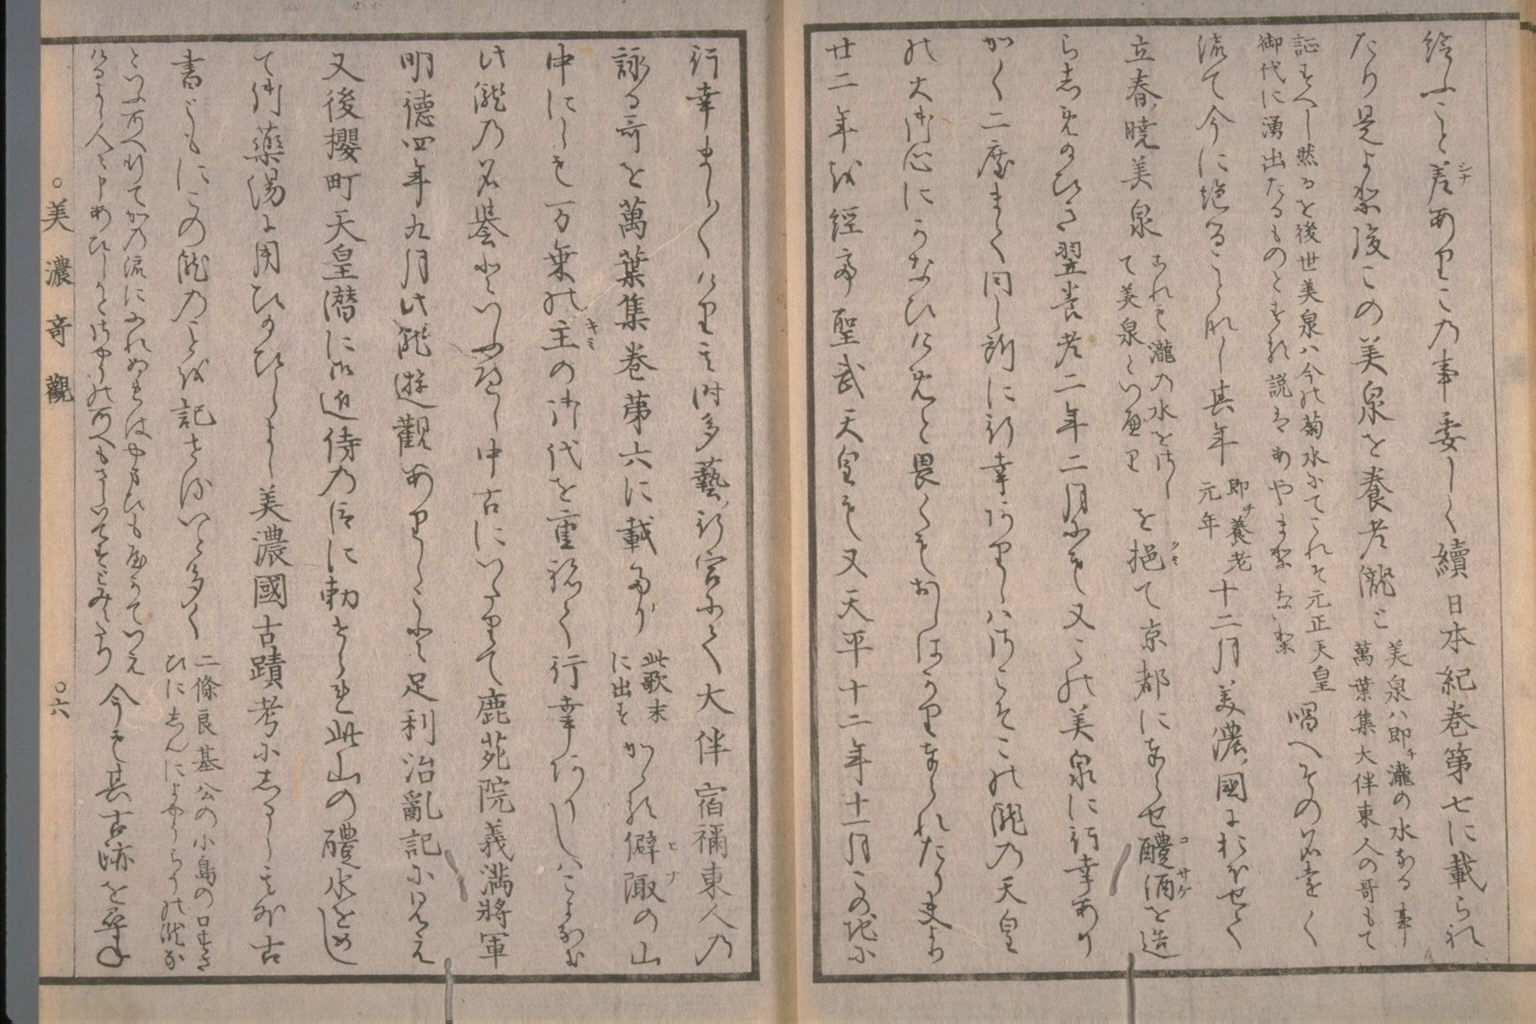 給ふこと差シナありこの事委しく續日本紀巻第七に載られ
たり是より後この美泉を養老瀧と
美泉ハ即チ瀧の水なる事
萬葉集大伴東人の哥もて
証すへし然るを後世美泉ハ今の菊水にてこれそ元正天皇
御代に湧出たるものとするの説はあやまりなり
唱へその名遠く
流て今に絶ることなし其年
即チ養老
元年
十二月美濃國におほせて
立春暁美泉
これも瀧の水をさし
て美泉といへり
を挹クミて京都にまゐらせ醴酒コサケを造
らしめのひき翌養老二年二月にも又この美泉に行幸あり
かく二度まて同し所に行幸ありしハさこそこの瀧乃天皇
の大御心にかなひけめと畏くもおしはかりまゐられたり夫より
廿二年を經而聖武天皇も又天平十二年十二月この地に
行幸ましましけり其時多藝行宮にて大伴宿禰東人乃
詠る哥を萬葉集巻第六に載たり
此歌末
に出す
かゝる僻陬ヒナの山
中にしも万乗の主キミの御代を重ねて行幸ありしハこよなき
此瀧乃名誉といふへし中古にいたりて鹿苑院義満將軍
明德四年九月此瀧遊觀ありしこと足利治亂記に見え
又後櫻町天皇潜に御近侍乃臣に勅せられ此山の醴水をめし
て御藥湯に用ひ給ひしよし美濃國古蹟考にしるし其外古
書ともにこの瀧乃ことを記せるいと多く
二條良基公の小島の口すさ
ひに
今も其古跡を尋ね
○美濃奇觀
○六